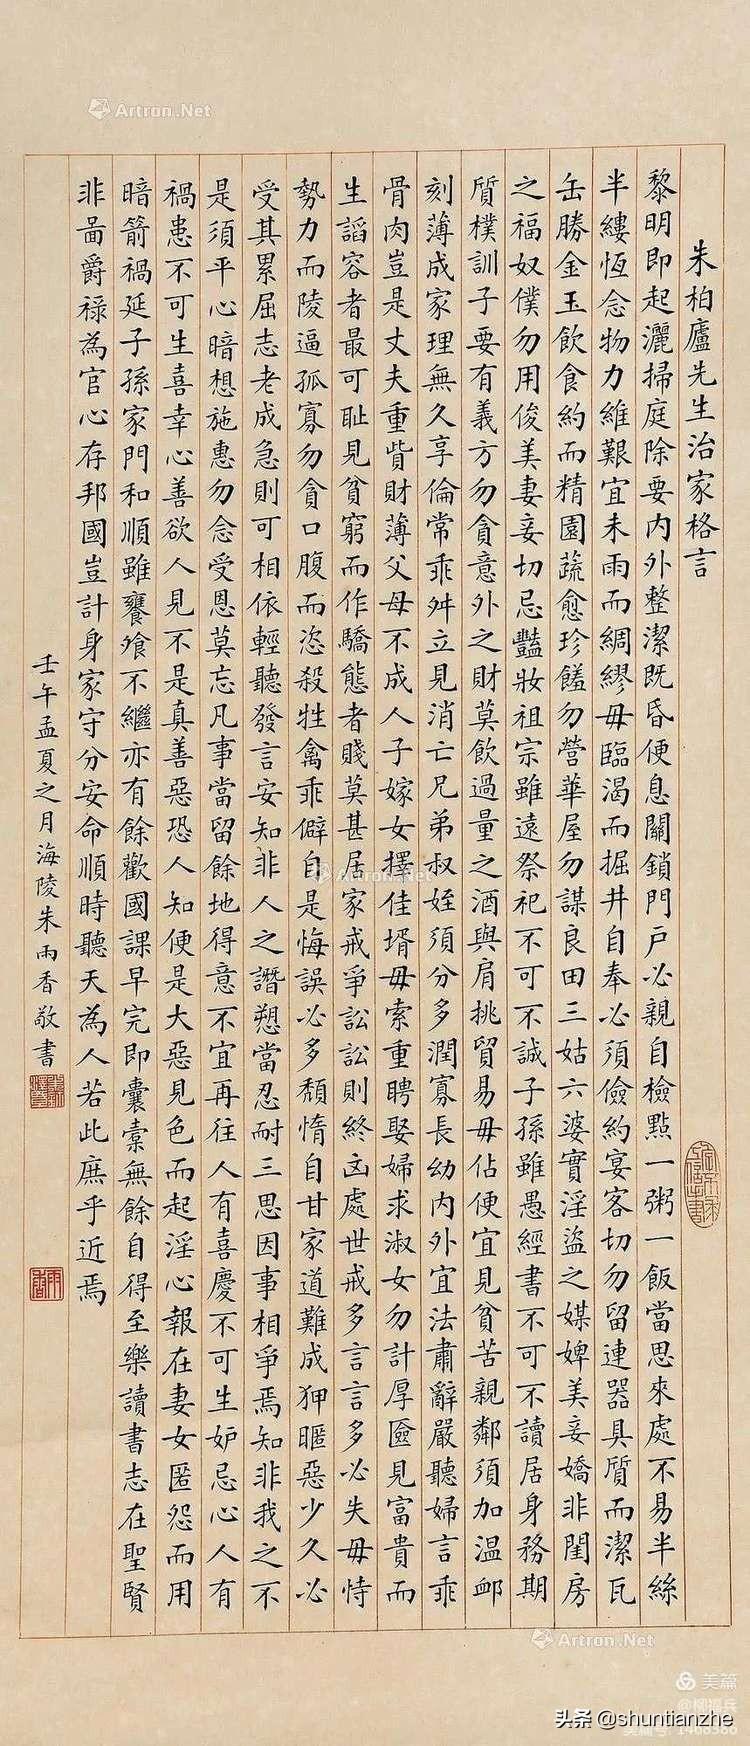 朱柏廬先生治家格言
黎明即起灑掃庭除要内外整潔既昏便息關鎖門戶必親自檢點一粥一飯當思來處不易半絲
半縷恆念物力維艱宜未雨而綢繆毋臨渴而掘井自奉必須儉約宴客切勿留連器具質而潔瓦
缶勝金玉飲食約而精園蔬愈珍饈勿營華屋勿謀良田三姑六婆實淫盜之媒婢美妾嬌非閨房
之福奴僕勿用俊美妻妾切忌豔妝祖宗雖遠祭祀不可不誠子孫雖愚經書不可不讀居身務期
質樸訓子要有義方勿貪意外之財莫飲過量之酒與肩挑貿易毋佔便宜見貧苦親鄰須加溫卹
刻薄成家理無久享倫常乖舛立見消亡兄弟叔姪須分多潤寡長幼内外宜法肅辭嚴聽婦言乖
骨肉豈是丈夫重貲財薄父母不成人子嫁女擇佳壻毋索重聘娶婦求淑女勿計厚奩見富貴而
生諂容者最可恥見貧窮而作驕態者賤莫甚居家戒爭訟訟則終凶處世戒多言言多必失毋恃
勢力而陵逼孤寡勿貪口腹而恣殺牲禽乖僻自是悔誤必多頹惰自甘家道難成狎暱惡少久必
受其累屈志老成急則可相依輕聽發言安知非人之譖愬當忍耐三思因事相爭焉知非我之不
是須平心暗想施惠勿念受恩莫忘凡事當留餘地得意不宜再往人有喜慶不可生妒忌心人有
禍患不可生喜幸心善欲人見不是真善惡恐人知便是大惡見色而起淫心報在妻女匿怨而用
暗箭禍延子孫家門和順雖饔飧不繼亦有餘歡國課早完即囊橐無餘自得至樂讀書志在聖賢
非啚爵祿為官心存邦國豈計身家守分安命順時聽天為人若此庶乎近焉
壬午孟夏之月海陵朱雨香敬書
Artron.Net
Artron.Net
Artron.Net
美篇
头条 @shuntianzhe